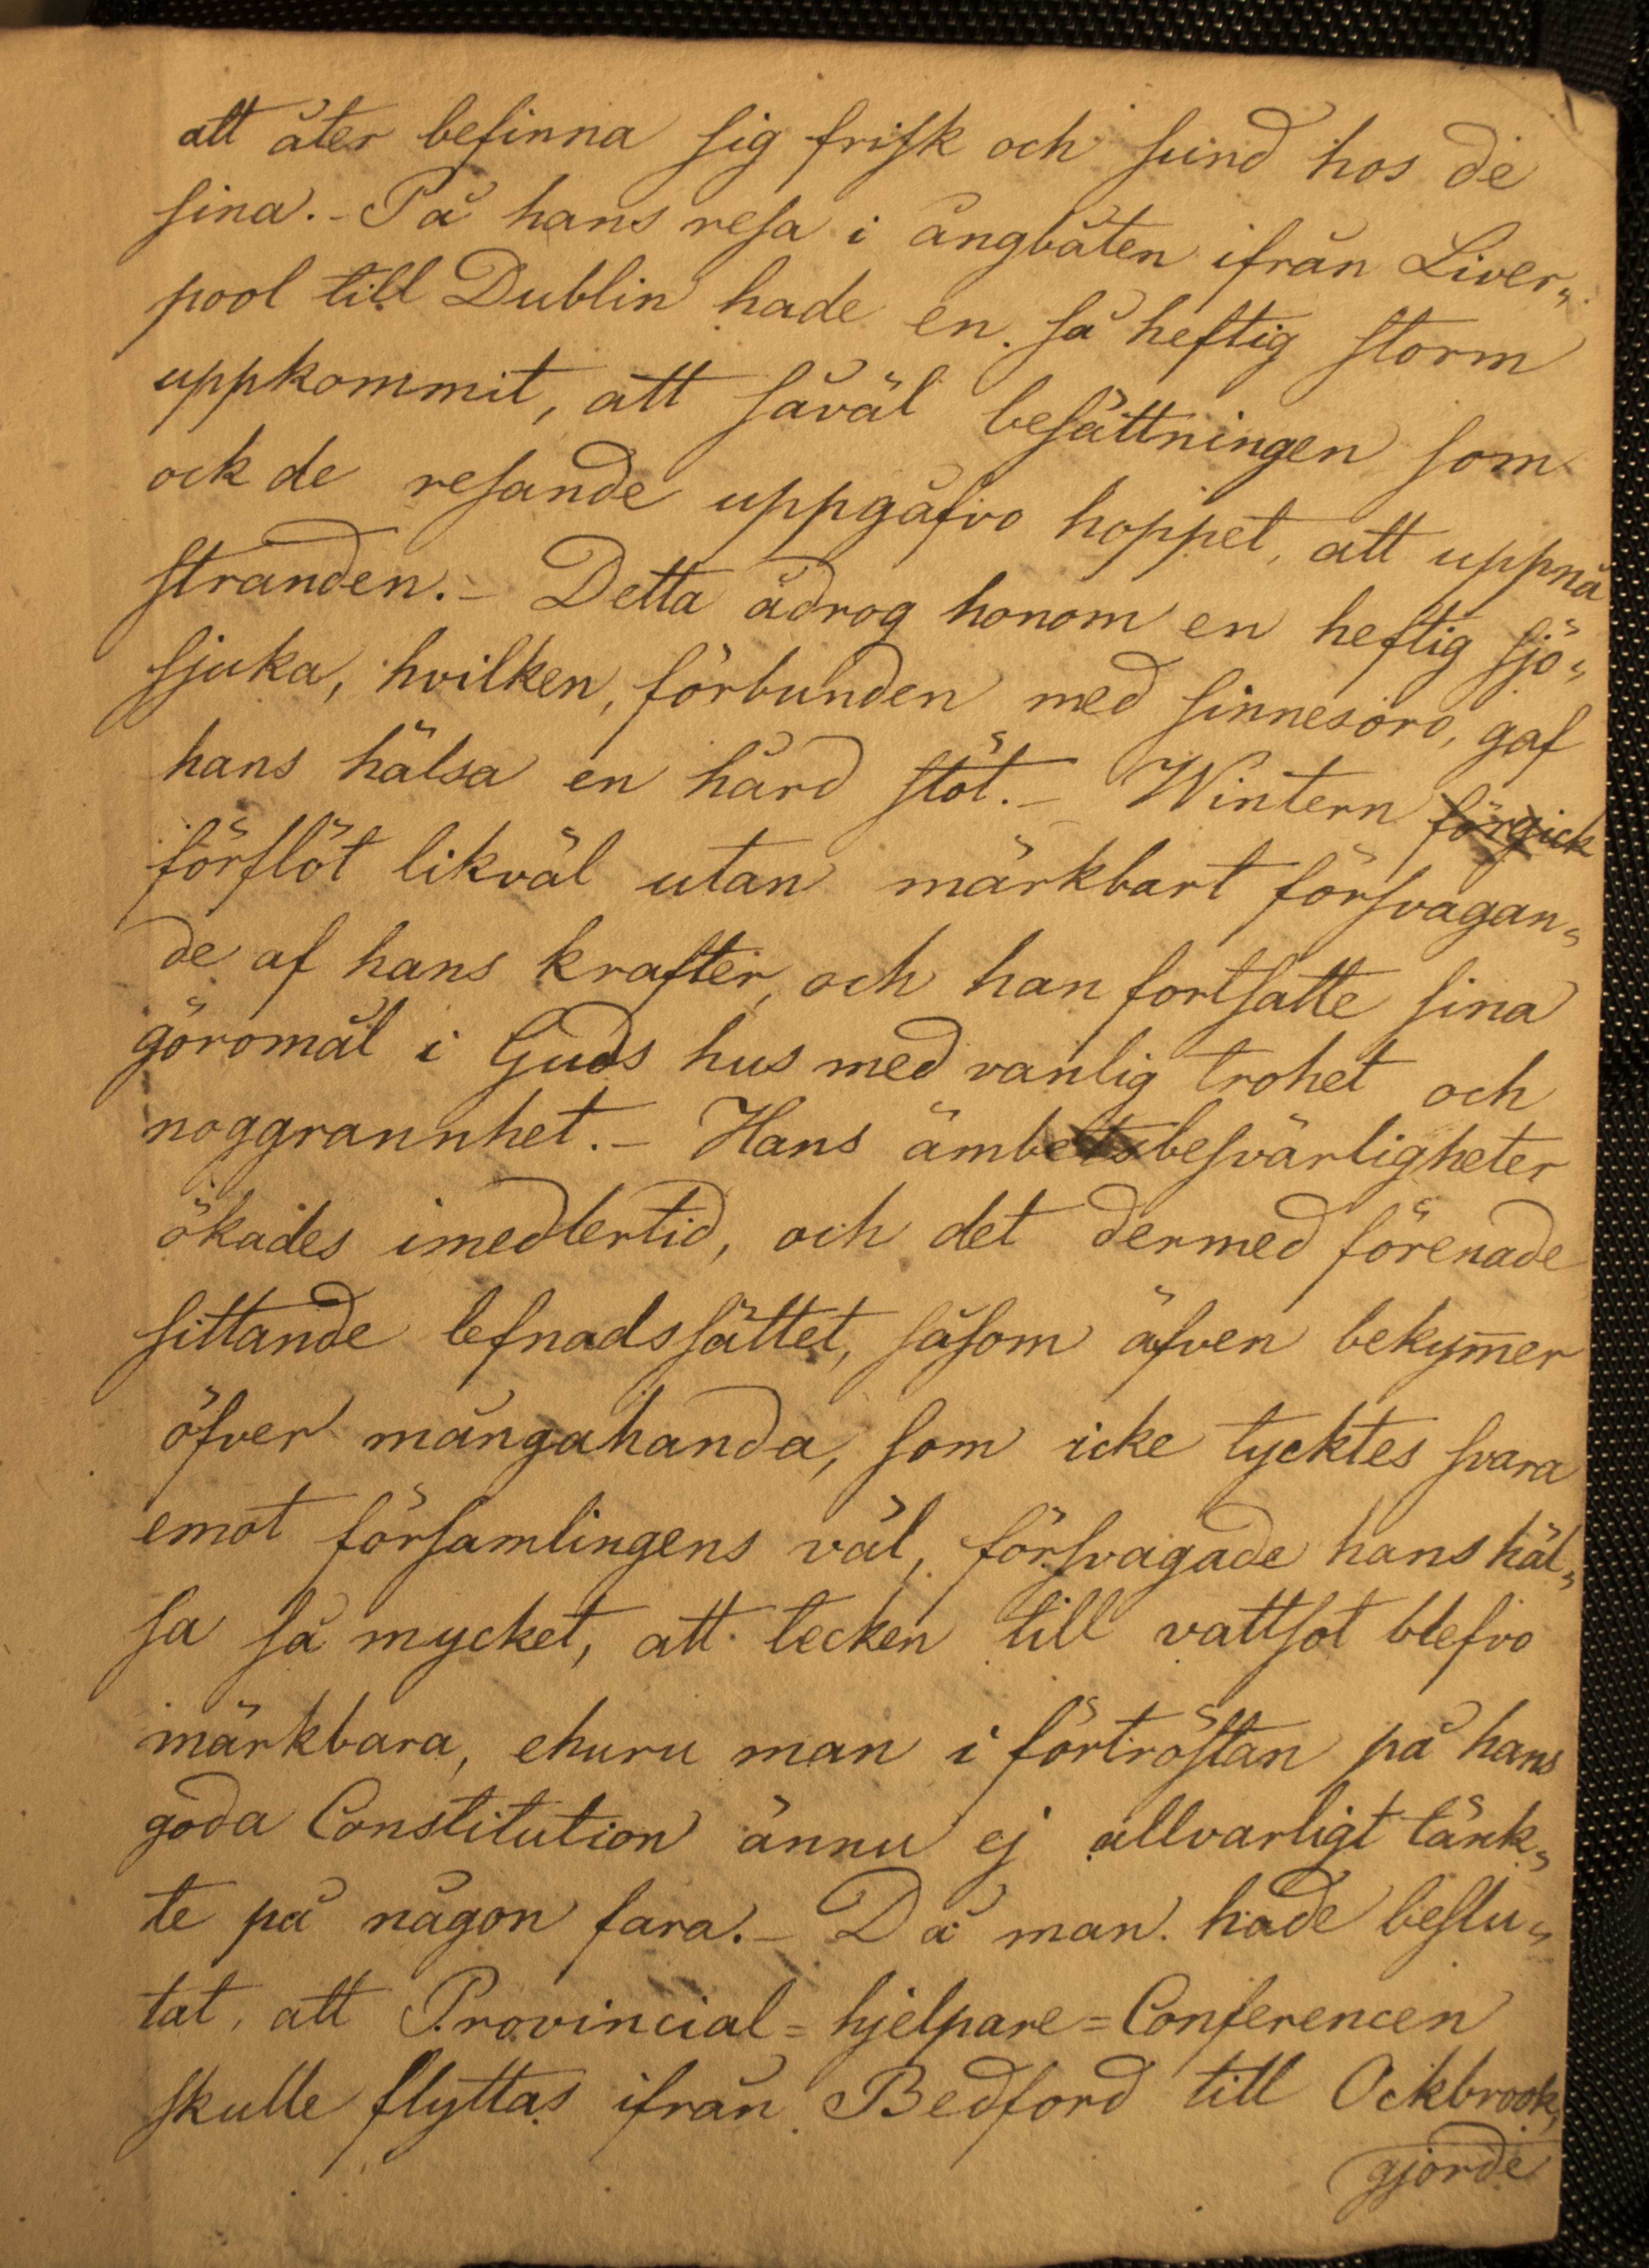 att åter befinna sig frisk och sund hos de
sina. - På hans resa i ångbåten ifrån Liver„
pool till Dublin hade en så heftig storm
uppkommit, att såväl besättningen som
ock de resande uppgåfvo hoppet, att uppnå
stranden. - Detta ådrog honom en heftig sjö„
sjuka, hvilken, förbunden med sinnesoro, gaf
hans hälsa en hård stöt. - Wintern förgick
förflöt likväl utan märkbart försvagan„
de af hans krafter, och han fortsatte sina
göromål i Guds hus med vanlig trohet och
noggrannhet. - Hans ämbetsbesvärligheter
ökades imedlertid, och det dermed förenade
sittande lefnadssättet, såsom äfven bekym̅er
öfver mångahanda, som icke tycktes svara
emot församlingens väl, försvagade hans häl„
sa så mycket, att tecken till vattsot blefvo
märkbara, ehuru man i förtröstan på hans
goda Constitution ännu ej allvarligt tänk„
te på någon fara. - Då man hade beslu„
tat, att Provincial=hjelpare=Conferencen
skulle flyttas ifrån Bedford till Ockbrook,
gjorde